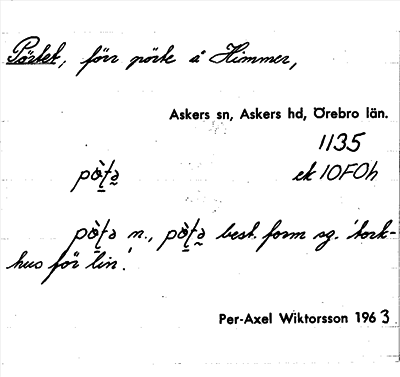 Pörtet, förr pörte å Himmer,
Askers sn, Askers hd, Örebro län.
1135
ek 10F0h
pò̱ʈə̰
pò̱ʈə n., pò̱ʈə̰ best. form sg. 'tork-
hus för lin'.
Per-Axel Wiktorsson 1963.